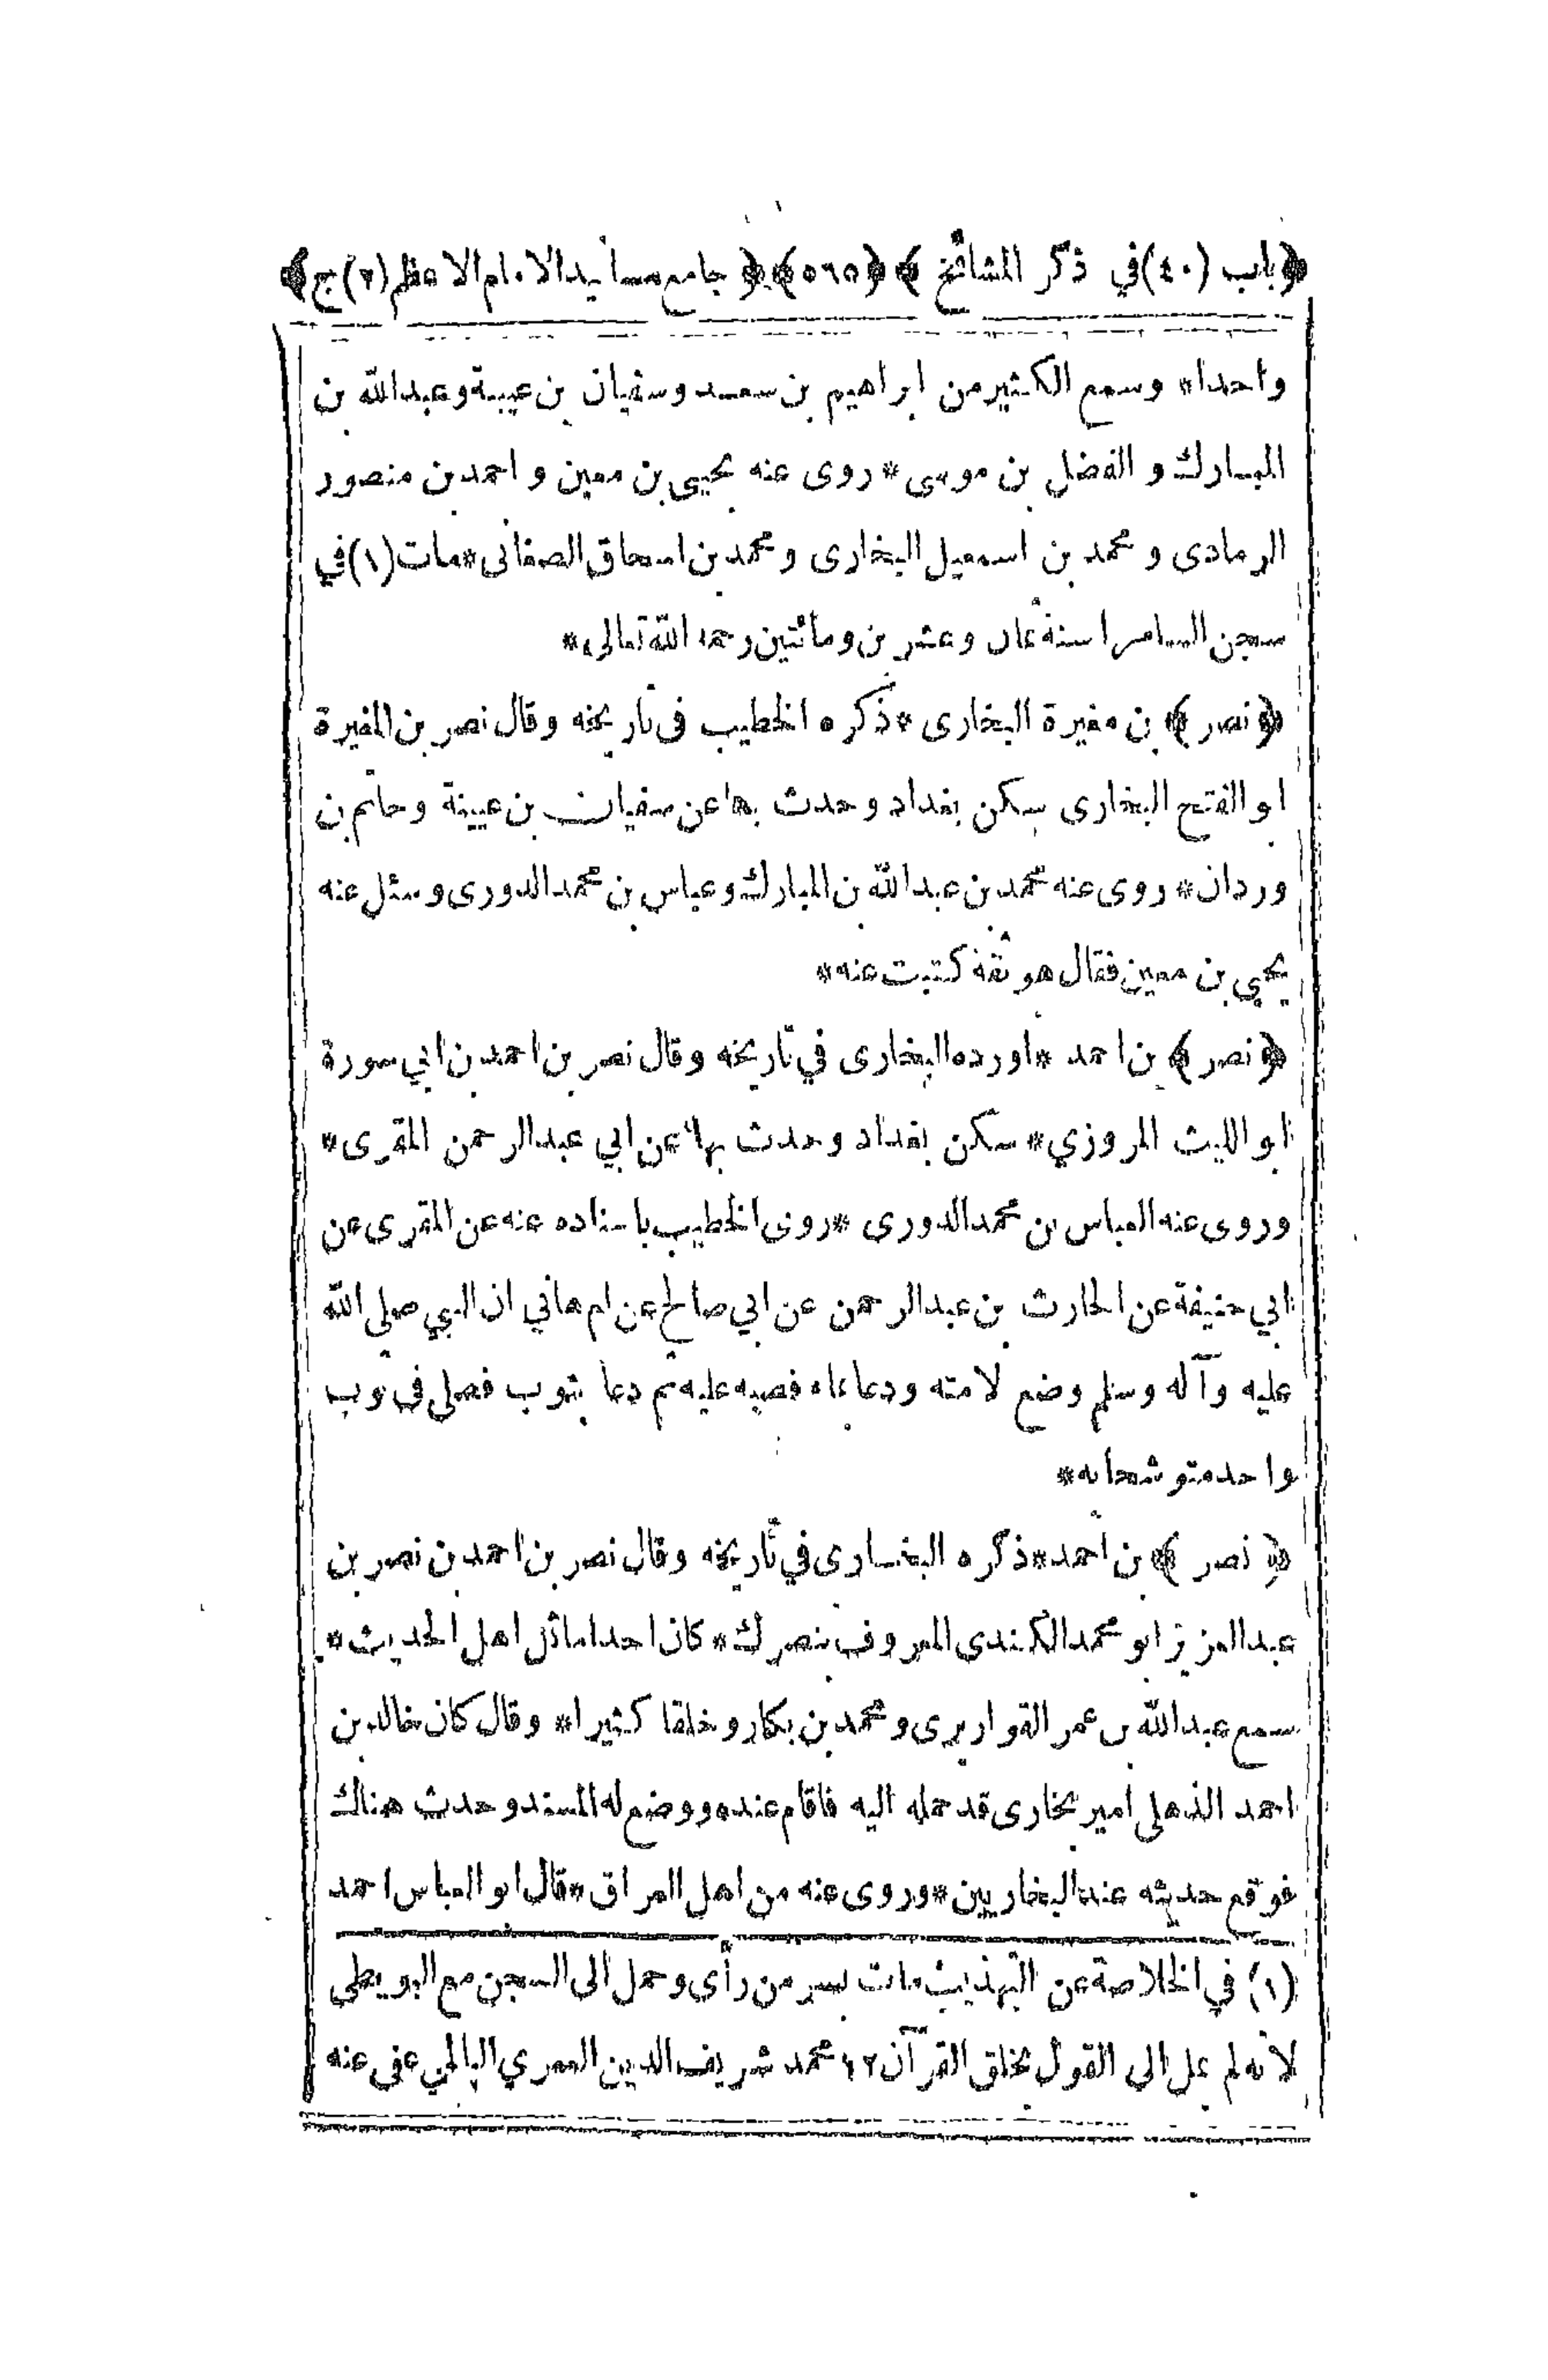 ﴿باب (٤٠) في ذكر المشائخ﴾ ﴿٥٦٥﴾ ﴿جامع مسانيد الامام الاعظم (٢) ج﴾
واحدا* وسمع الكثير من ابراهيم بن سعد وسفيان بن عيينة وعبدالله بن
المبارك و الفضل بن موسى* روى عنه يحيى بن معين و احمد بن منصور
الرمادى و محمد بن اسمعيل البخارى و محمد بن اسحاق الصغانى* مات (١) في
سجن السامرا سنة ثمان وعشرين ومائتين رحمه الله تعالى*
﴿نصر﴾ بن مغيرة البخارى* ذكره الخطيب فى تاريخه وقال نصر بن المغيرة
ابو الفتح البخارى سكن بغداد وحدث بها عن سفيان بن عيينة وحاتم بن
وردان* روى عنه محمد بن عبدالله بن المبارك وعباس بن محمد الدورى وسئل عنه
يحيى بن معين فقال هو ثقة كتبت عنه*
﴿نصر﴾ بن احمد* اورده البخارى في تاريخه وقال نصر بن احمد بن ابي سورة
ابو الليث المروزي* سكن بغداد وحدث بها عن ابي عبدالرحمن المقرى*
وروى عنه العباس بن محمد الدورى* روى الخطيب باسناده عنه عن المقرى عن
ابي حنيفة عن الحارث بن عبدالرحمن عن ابي صالح عن ام هاني ان النبي صلى الله
عليه وآله وسلم وضع لامته ودعا بماء فصبه عليه ثم دعا بثوب فصلى فى ثوب
واحد متوشحا به*
﴿نصر﴾ بن احمد* ذكره البخارى في تاريخه وقال نصر بن احمد بن نصر بن
عبدالعزيز ابو محمد الكندى المعروف بنصرك* كان احد اماثل اهل الحديث*
سمع عبدالله بن عمر القواريرى و محمد بن بكار و خلقا كثيرا* وقال كان خالد بن
احمد الذهلى امير بخارى قد حمله اليه فاقام عنده ووضع له المسند وحدث هناك
فوقع حديثه عند البخاريين* وروى عنه من اهل العراق* قال ابو العباس احمد
(١) في الخلاصة عن التهذيب مات بسر من رأى وحمل الى السجن مع البويطى
لانه لم يمل الى القول بخلق القرآن ١٢ محمد شريف الدين العمري عفى عنه